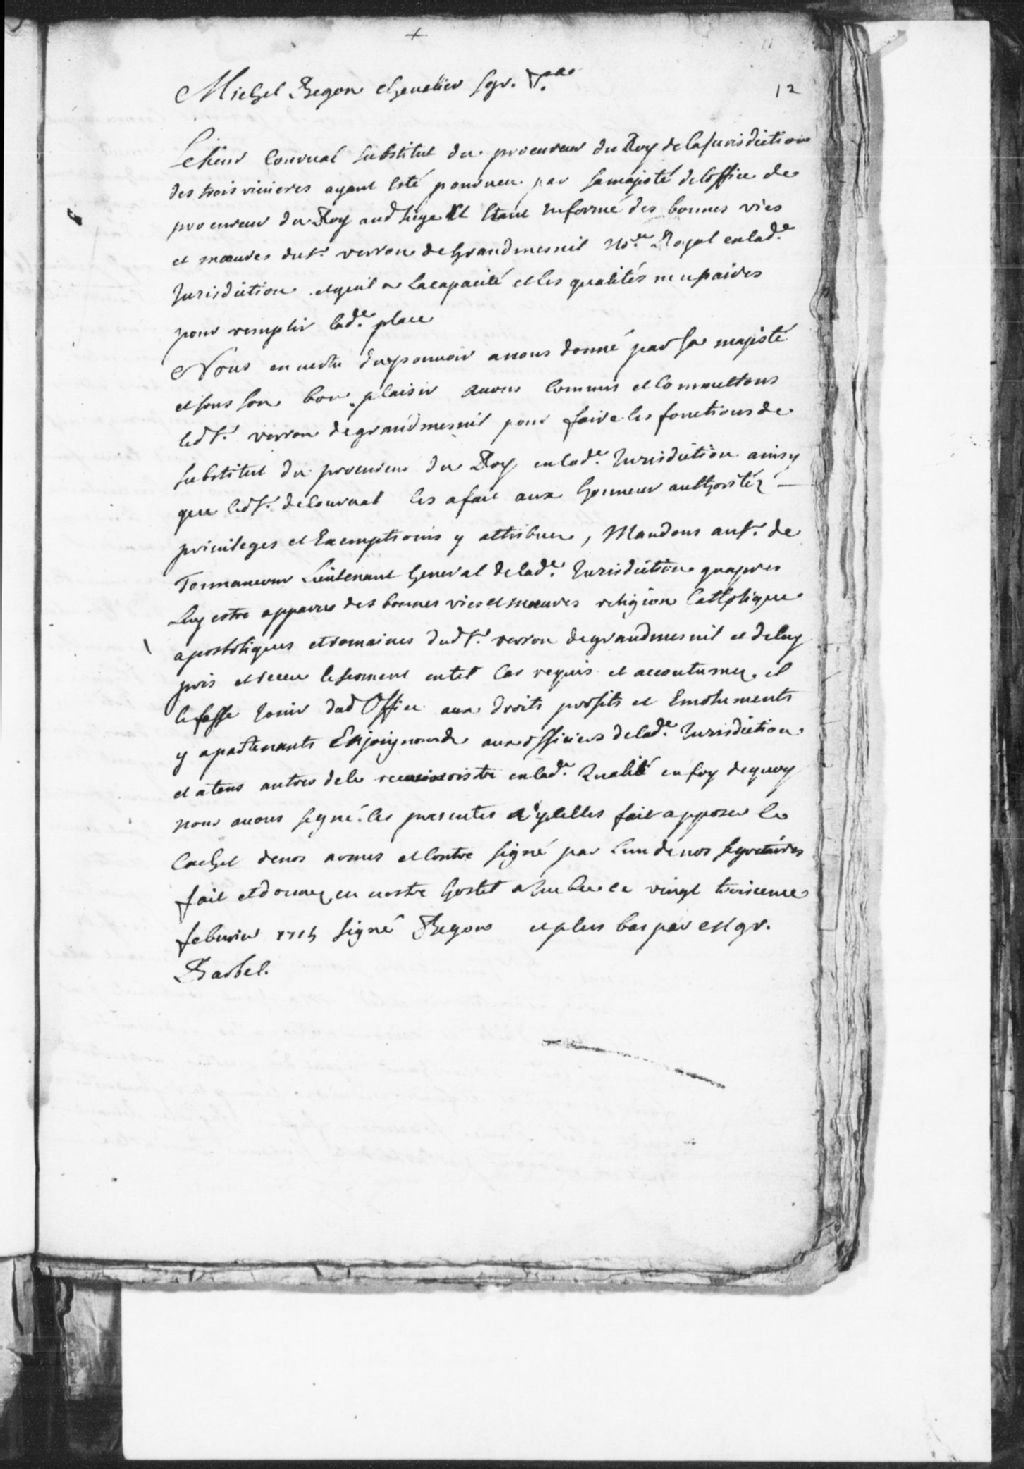 12
Michel Begon chevalier sgr. &a
Le sieur Courval substitut du procureur du Roy de la Jurisdiction
des trois rivieres ayant esté pourveu par sa majesté de l'office de
procureur du Roy aud. siege Et Etant Informé des bonnes vies
et mœurs du sr. verron de Grandmesnil Nore. Royal en lade.
Jurisdiction et quil a la capacité et les qualités necessaires
pour remplir lade. place
Nous en vertu du pouvoir a nous donné par sa majesté
et sous son bon plaisir avons commis et Commettons
led. sr. verron de grandmesnil pour faire les fonctions de
substitut du procureur du Roy en lade. Jurisdiction ainsy
que led. sr. de Courval les a fait aux honneur authoritéz
privileges et Exemptions y attribuez, Mandons au sr. de
Tonnancour Lieutenant General de lade. Jurisdiction quapres
luy estre apparu des bonnes vies et mœurs religion Catholique
apostolique et romaines dud. sr. verron de grandmesnil et de luy
pris et receu le serment en tel Cas requis et accoutumez il
le fasse Jouir dud Office aux droits profits et Emoluments
y apartenants Enjoignons aux officiers de lade. Jurisdiction
et a tous autres de le reconnoistre en lade. qualité en foy de quoy
nous avons signé les presentes a ycelles fait apposer le
Cachet de nos armes et Contre signé par lun de nos secretaires
fait et donnez en nostre hostel a quebec ce vingt troisieme
febvrier 1715 signé Begon et plus bas par mgr.
Barbel.